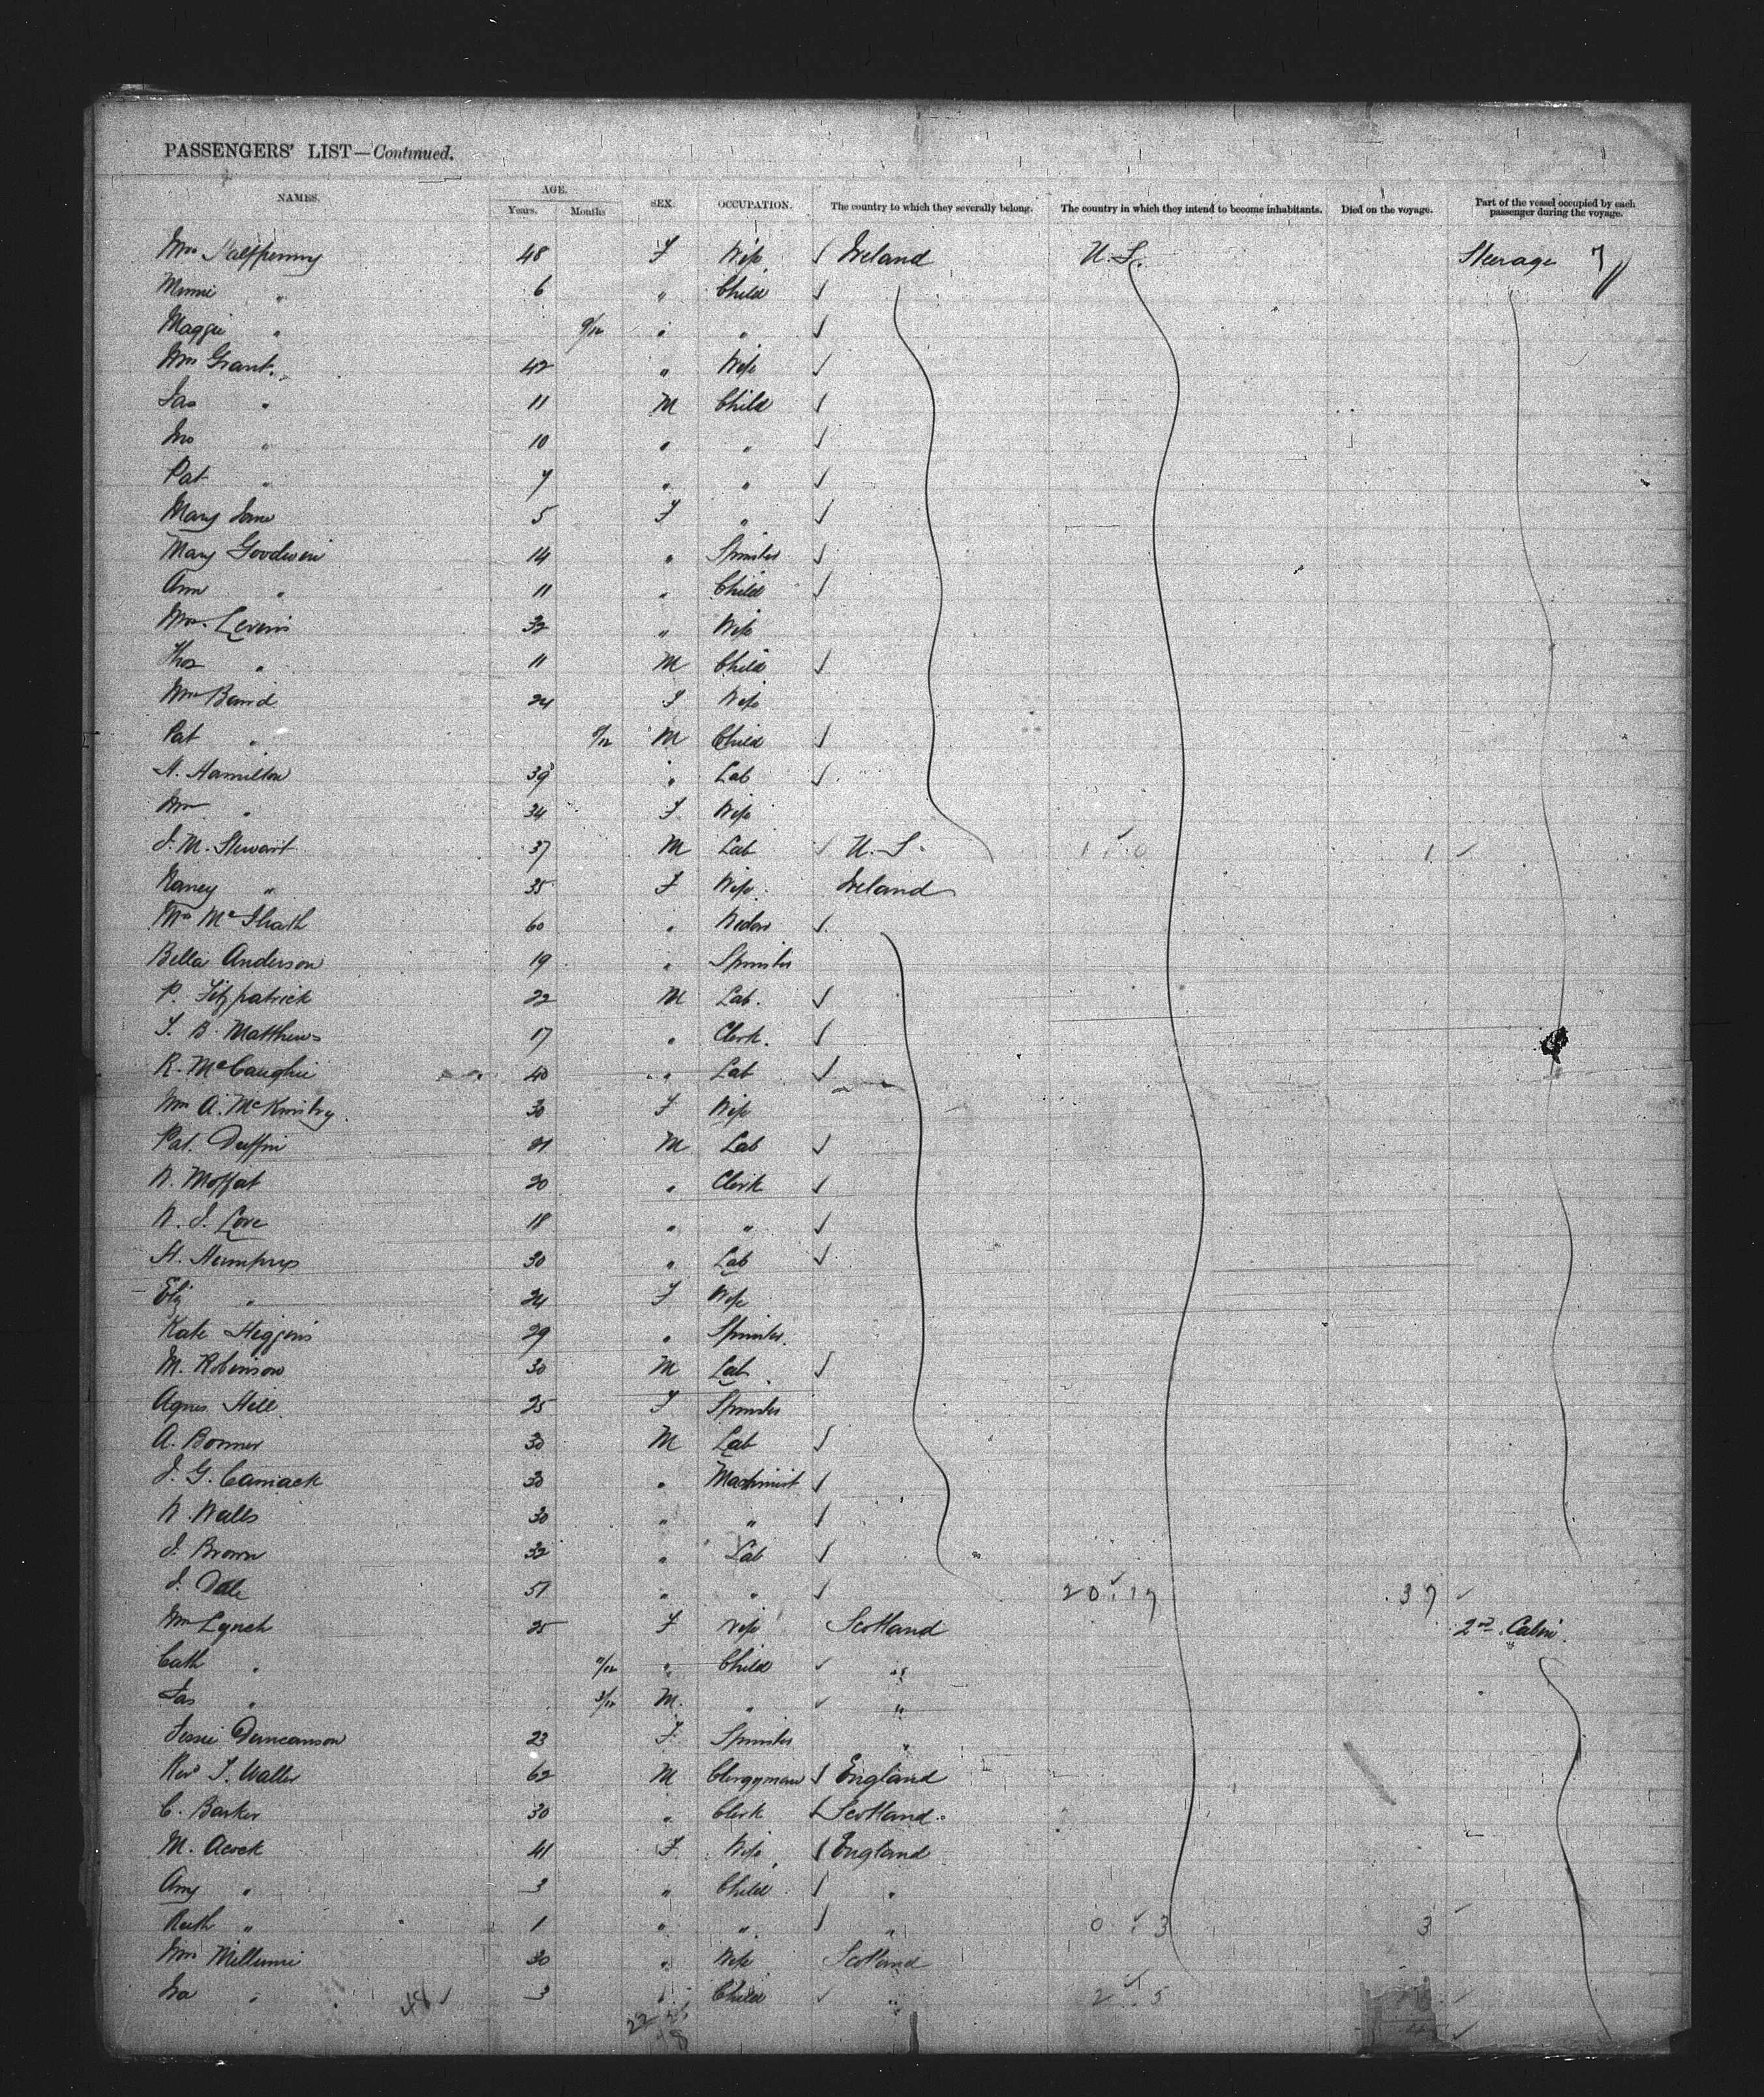 PASSENGERS' LIST—Continued.
NAMES. AGE. Years. Months SEX. OCCUPATION. The country to which they severally belong. The country in which they intend to become inhabitants. Died on the voyage. Part of the vessel occupied by each passenger during the voyage.
Mrs Halfpenny 48 F Wife Ireland U.S. Steerage
Minnie " 6 " Child
Maggie " 9/12 " "
Mrs Grant 42 " Wife
Jas " 11 M Child
Jno " 10 " "
Pat " 7 " "
Mary Jane 5 F "
Mary Goodwin 14 " Spinster
Ann " 11 " Child
Mrs. Levins 32 " Wife
Thos " 11 M Child
Mrs Baird 24 F Wife
Pat " M Child
H. Hamilton 39 " Lab
Mrs " 34 F Wife
J. M. Stewart 37 M Lab U.S. 1 . 0 1
Nancy " 35 F Wife Ireland
Mrs McIlrath 60 " Widow
Bella Anderson 19 " Spinster
P. Fitzpatrick 22 M Lab.
T. B. Matthews 17 " Clerk.
R. McCaughie 40 " Lab
Mrs A. McKinstry 30 F Wife
Pat. Duffin 21 M Lab
W. Moffat 20 " Clerk
W. J. Love 18 " "
H. Humphrys 30 " Lab
Eliz " 24 F Wife
Kate Higgins 29 " Spinster.
M. Robinson 30 M Lab
Agnes Hill 25 F Spinster
A. Bonner 30 M Lab
J. G. Camack 30 " Machinist
W. Walls 30 " "
J. Brown 32 " Lab
J. Dale 51 " " 20 . 17 37
Mrs Lynch 25 F Wife Scotland 2nd Cabin
Cath " 11/12 " Child "
Jas " 3/12 M. " "
Jessie Duncanson 23 F Spinster "
Revd T. Waller 62 M Clergyman England
C. Barker 30 " Clerk Scotland.
M. Acock 41 F Wife England
Amy " 3 " Child "
Ruth " 1 " " " 0 . 3 3
Mrs Millunie 30 " Wife Scotland
" 3 " Child " 2 . 5
48
22